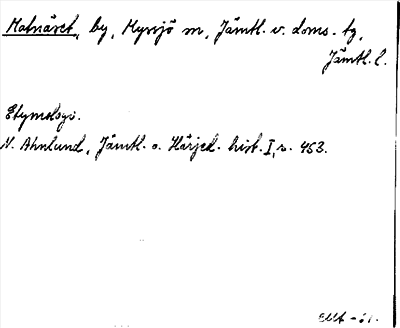 Matnäset, by, Myssjö sn, Jämtl. v. doms. tg,
Jämtl. l.
Etymologi.
N. Ahnlund, Jämtl. o. Härjed. hist. I, s. 463.